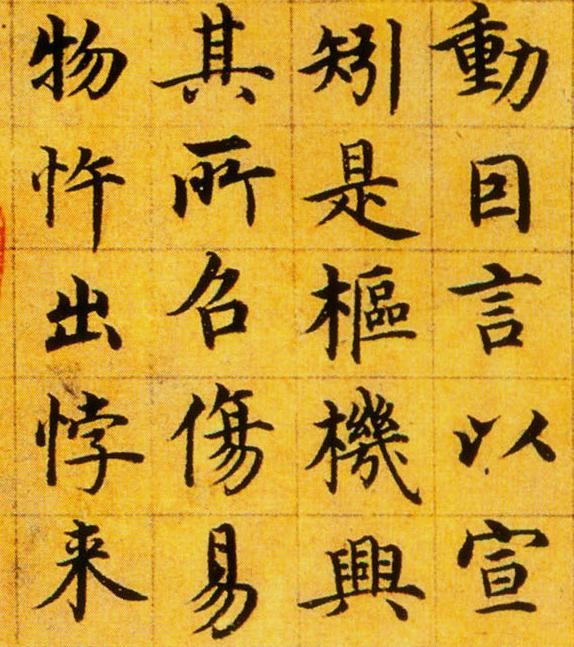 動囙言以宣
矧是樞機興
其所召傷易
物忤出悖来